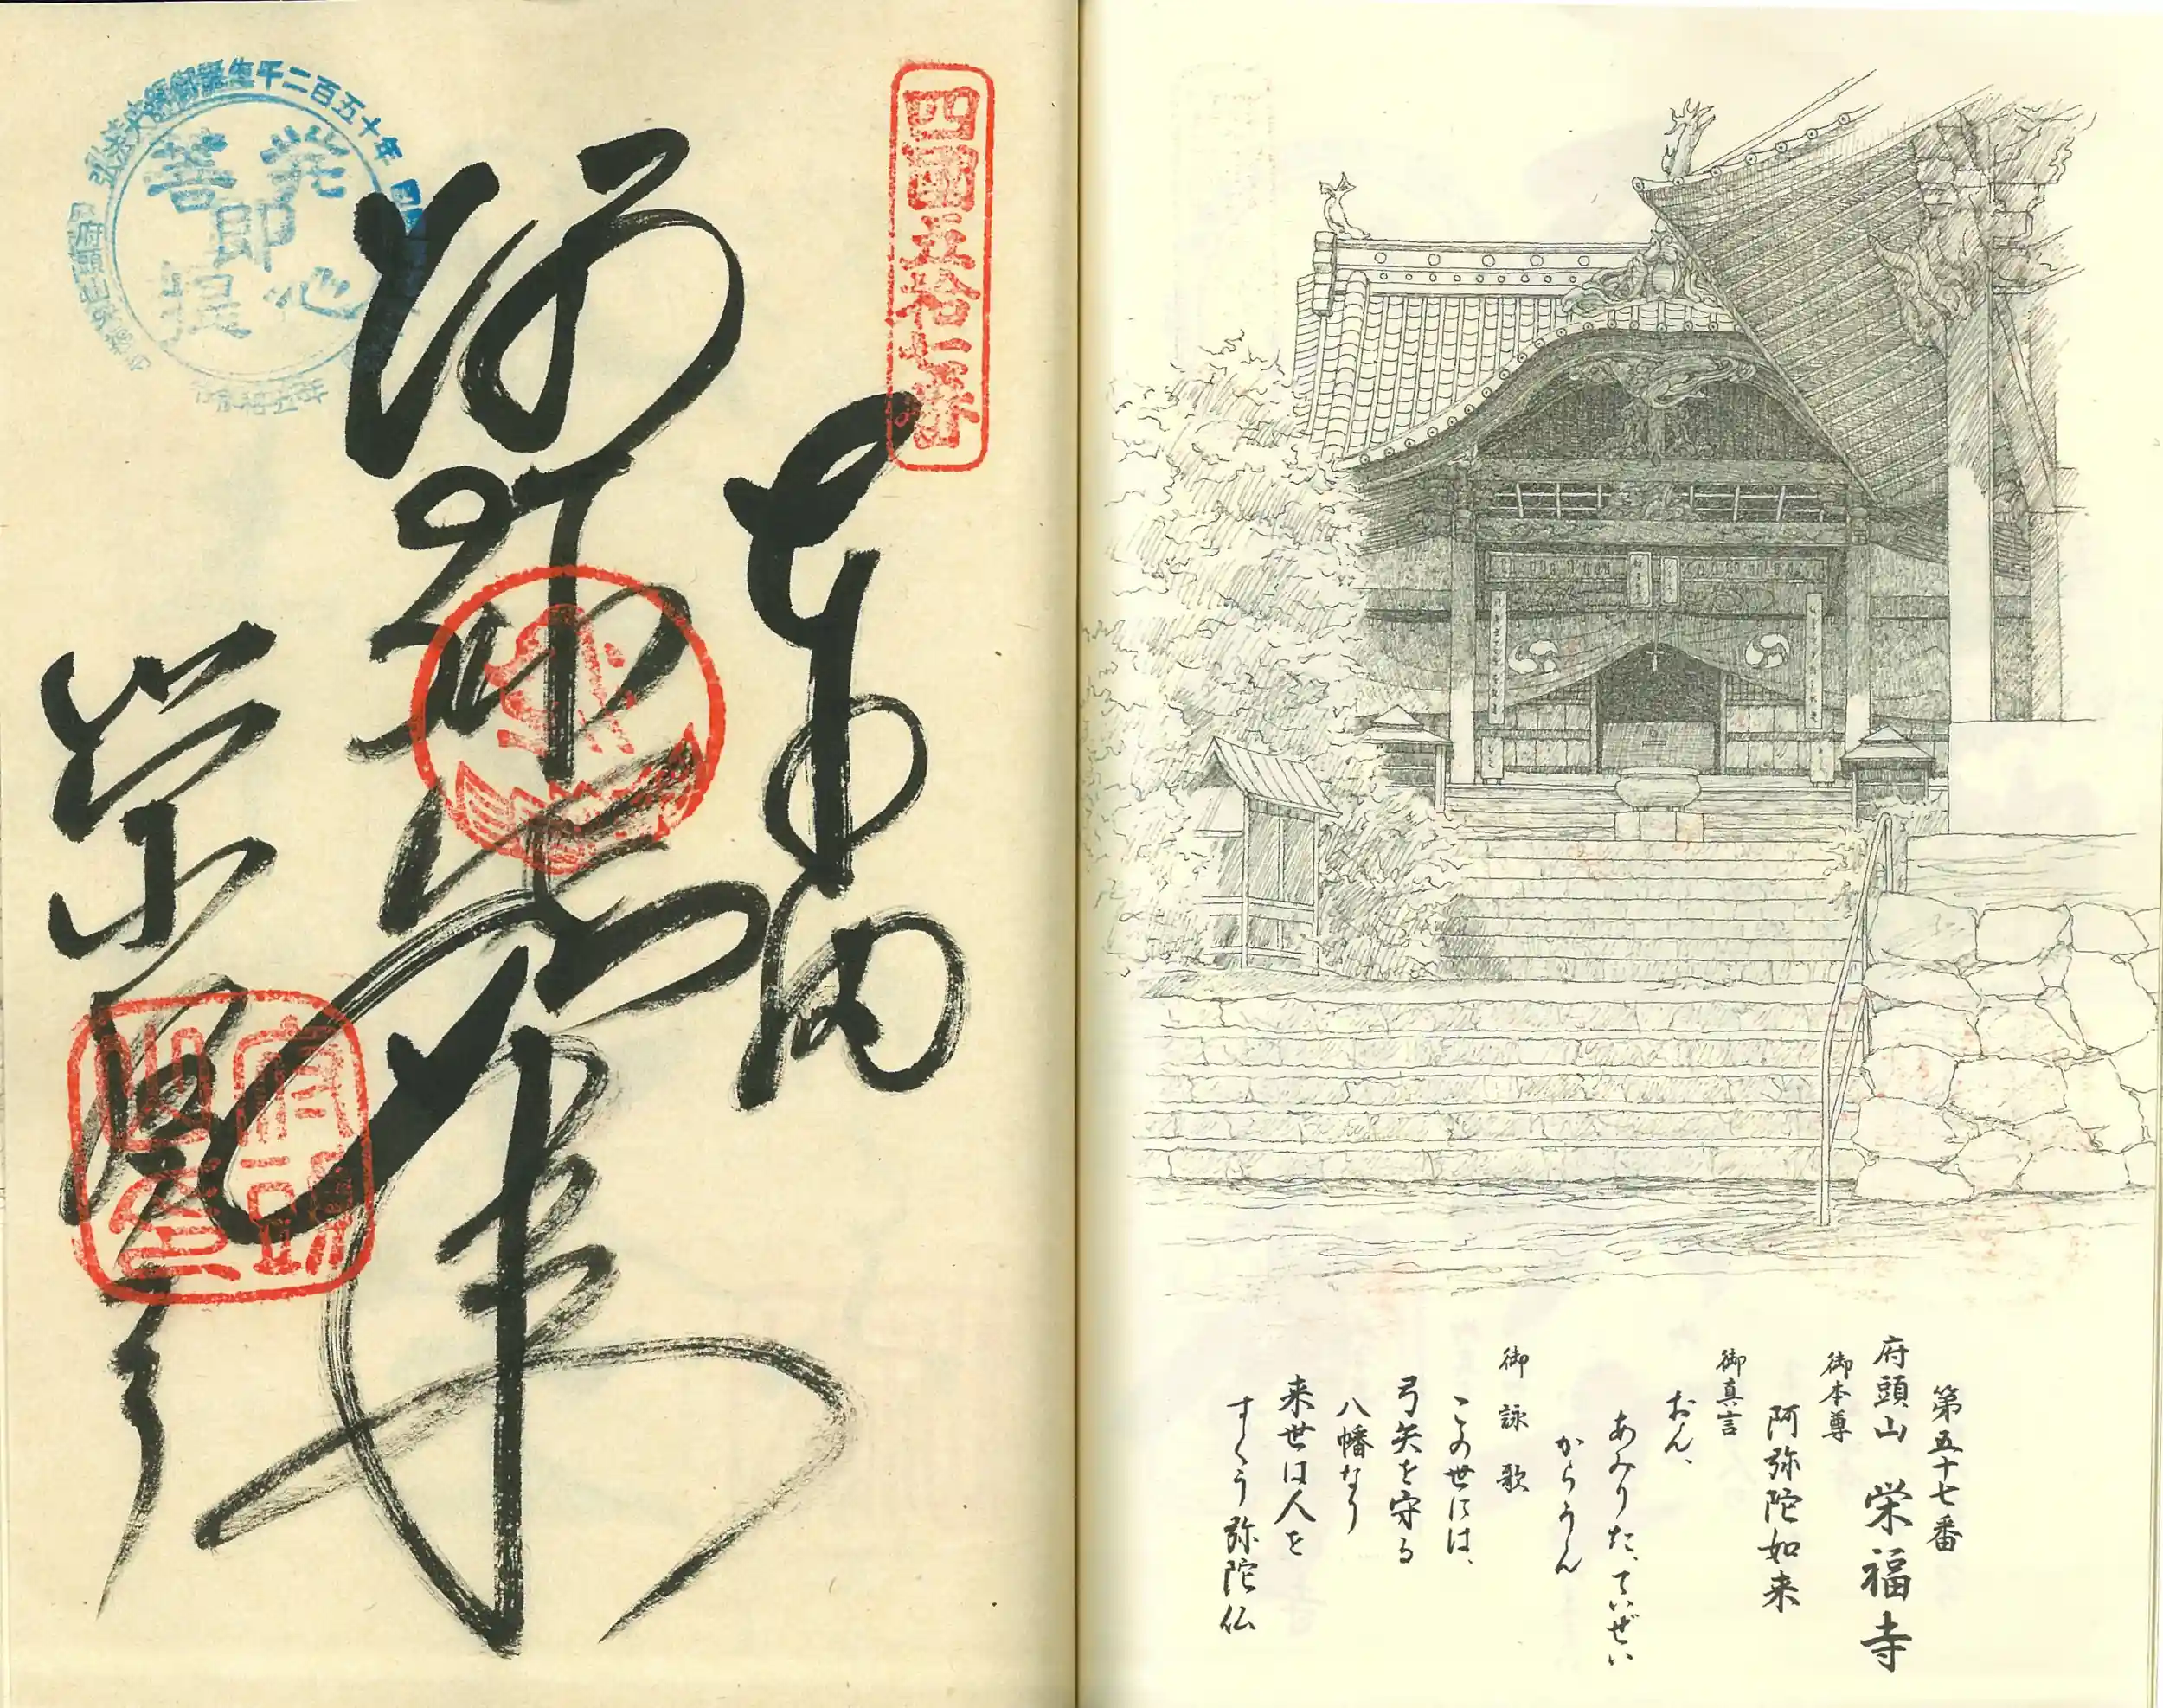 四國五拾七番
奉納
阿弥陀如来
栄福寺
弘法大師御誕生千二百五十年
発心即菩提
府頭山
第五十七番
府頭山 栄福寺
御本尊
阿弥陀如来
御真言
おん、
あみりた、ていぜい
からうん
御詠歌
この世には、
弓矢を守る
八幡なり
来世は人を
すくう弥陀仏